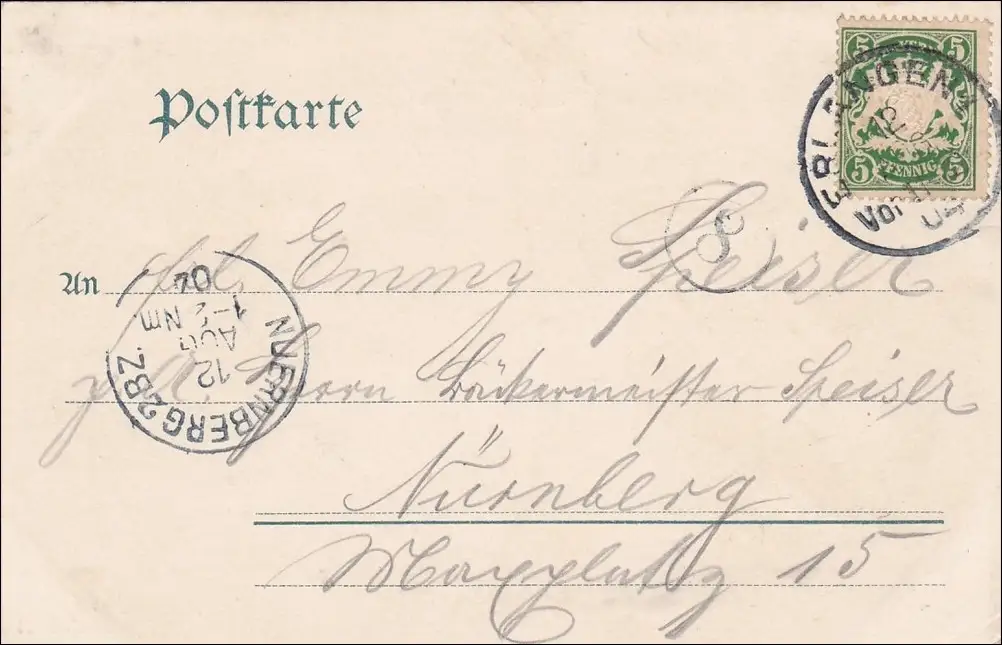 Postkarte
5 5
5 5
PFENNIG
ERLANGEN
12
Vor
An Frl. Emmy Speiser
8
NUERNBERG 2BZ.
12
AUG
1-2 Nm
02
p. A. Herrn Bäckermeister Speiser
Nürnberg
Maxplatz 15